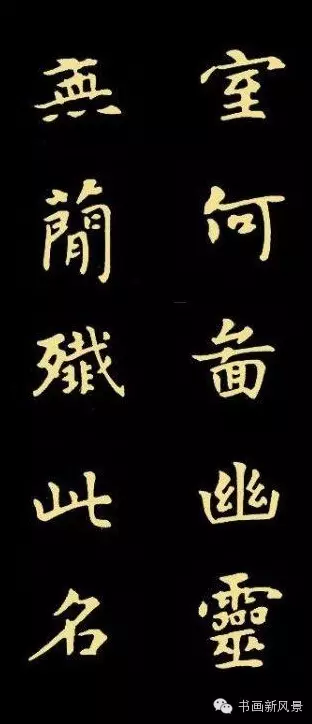 室何啚幽靈
無蕳殲此名
书画新风景